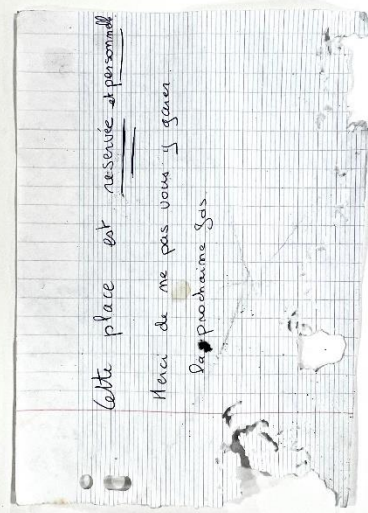 Cette place est reservée et personnelle
Merci de ne pas vous y garer
la prochaine fois.